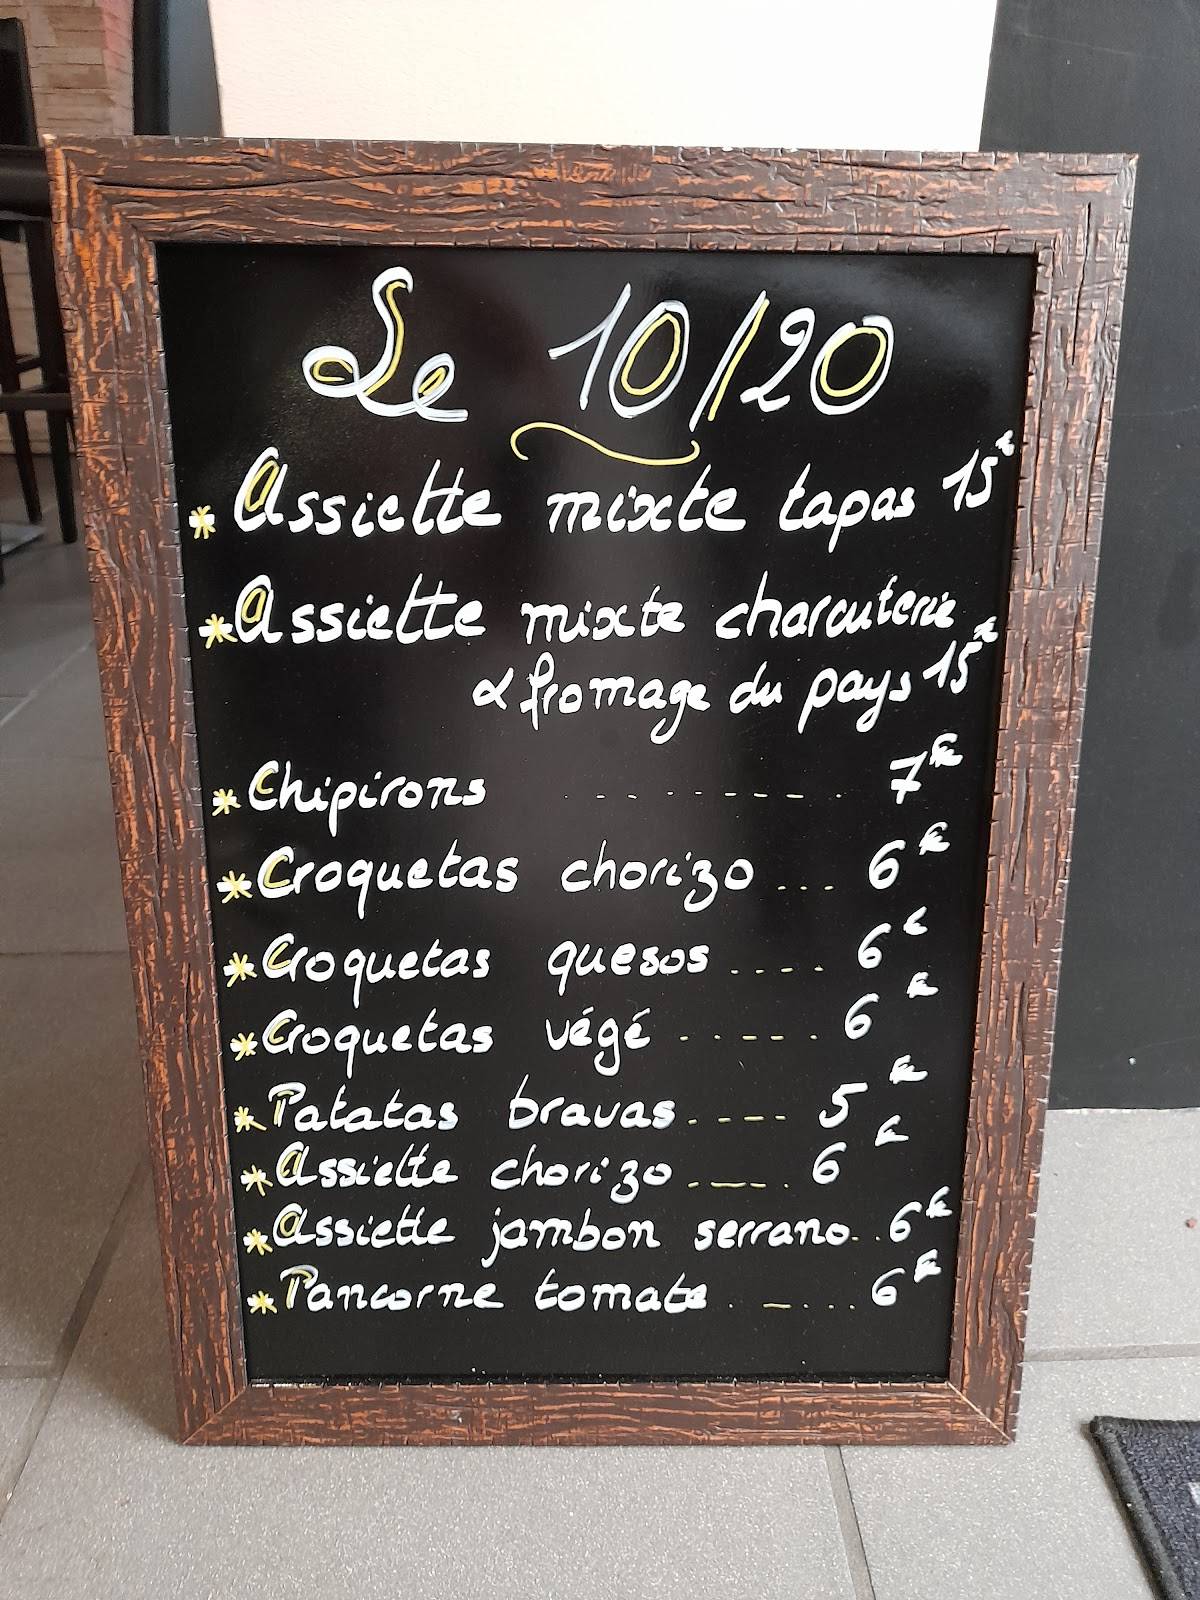 Le 10/20
* Assiette mixte tapas 15€
* Assiette mixte charcuterie
& fromage du pays 15€
* Chipirons .......... 7€
* Croquetas chorizo ... 6€
* Croquetas quesos .... 6€
* Croquetas végé ...... 6€
* Patatas bravas..... 5€
* Assiette chorizo..... 6€
* Assiette jambon serrano.. 6€
* Pancorne tomate ..... 6€